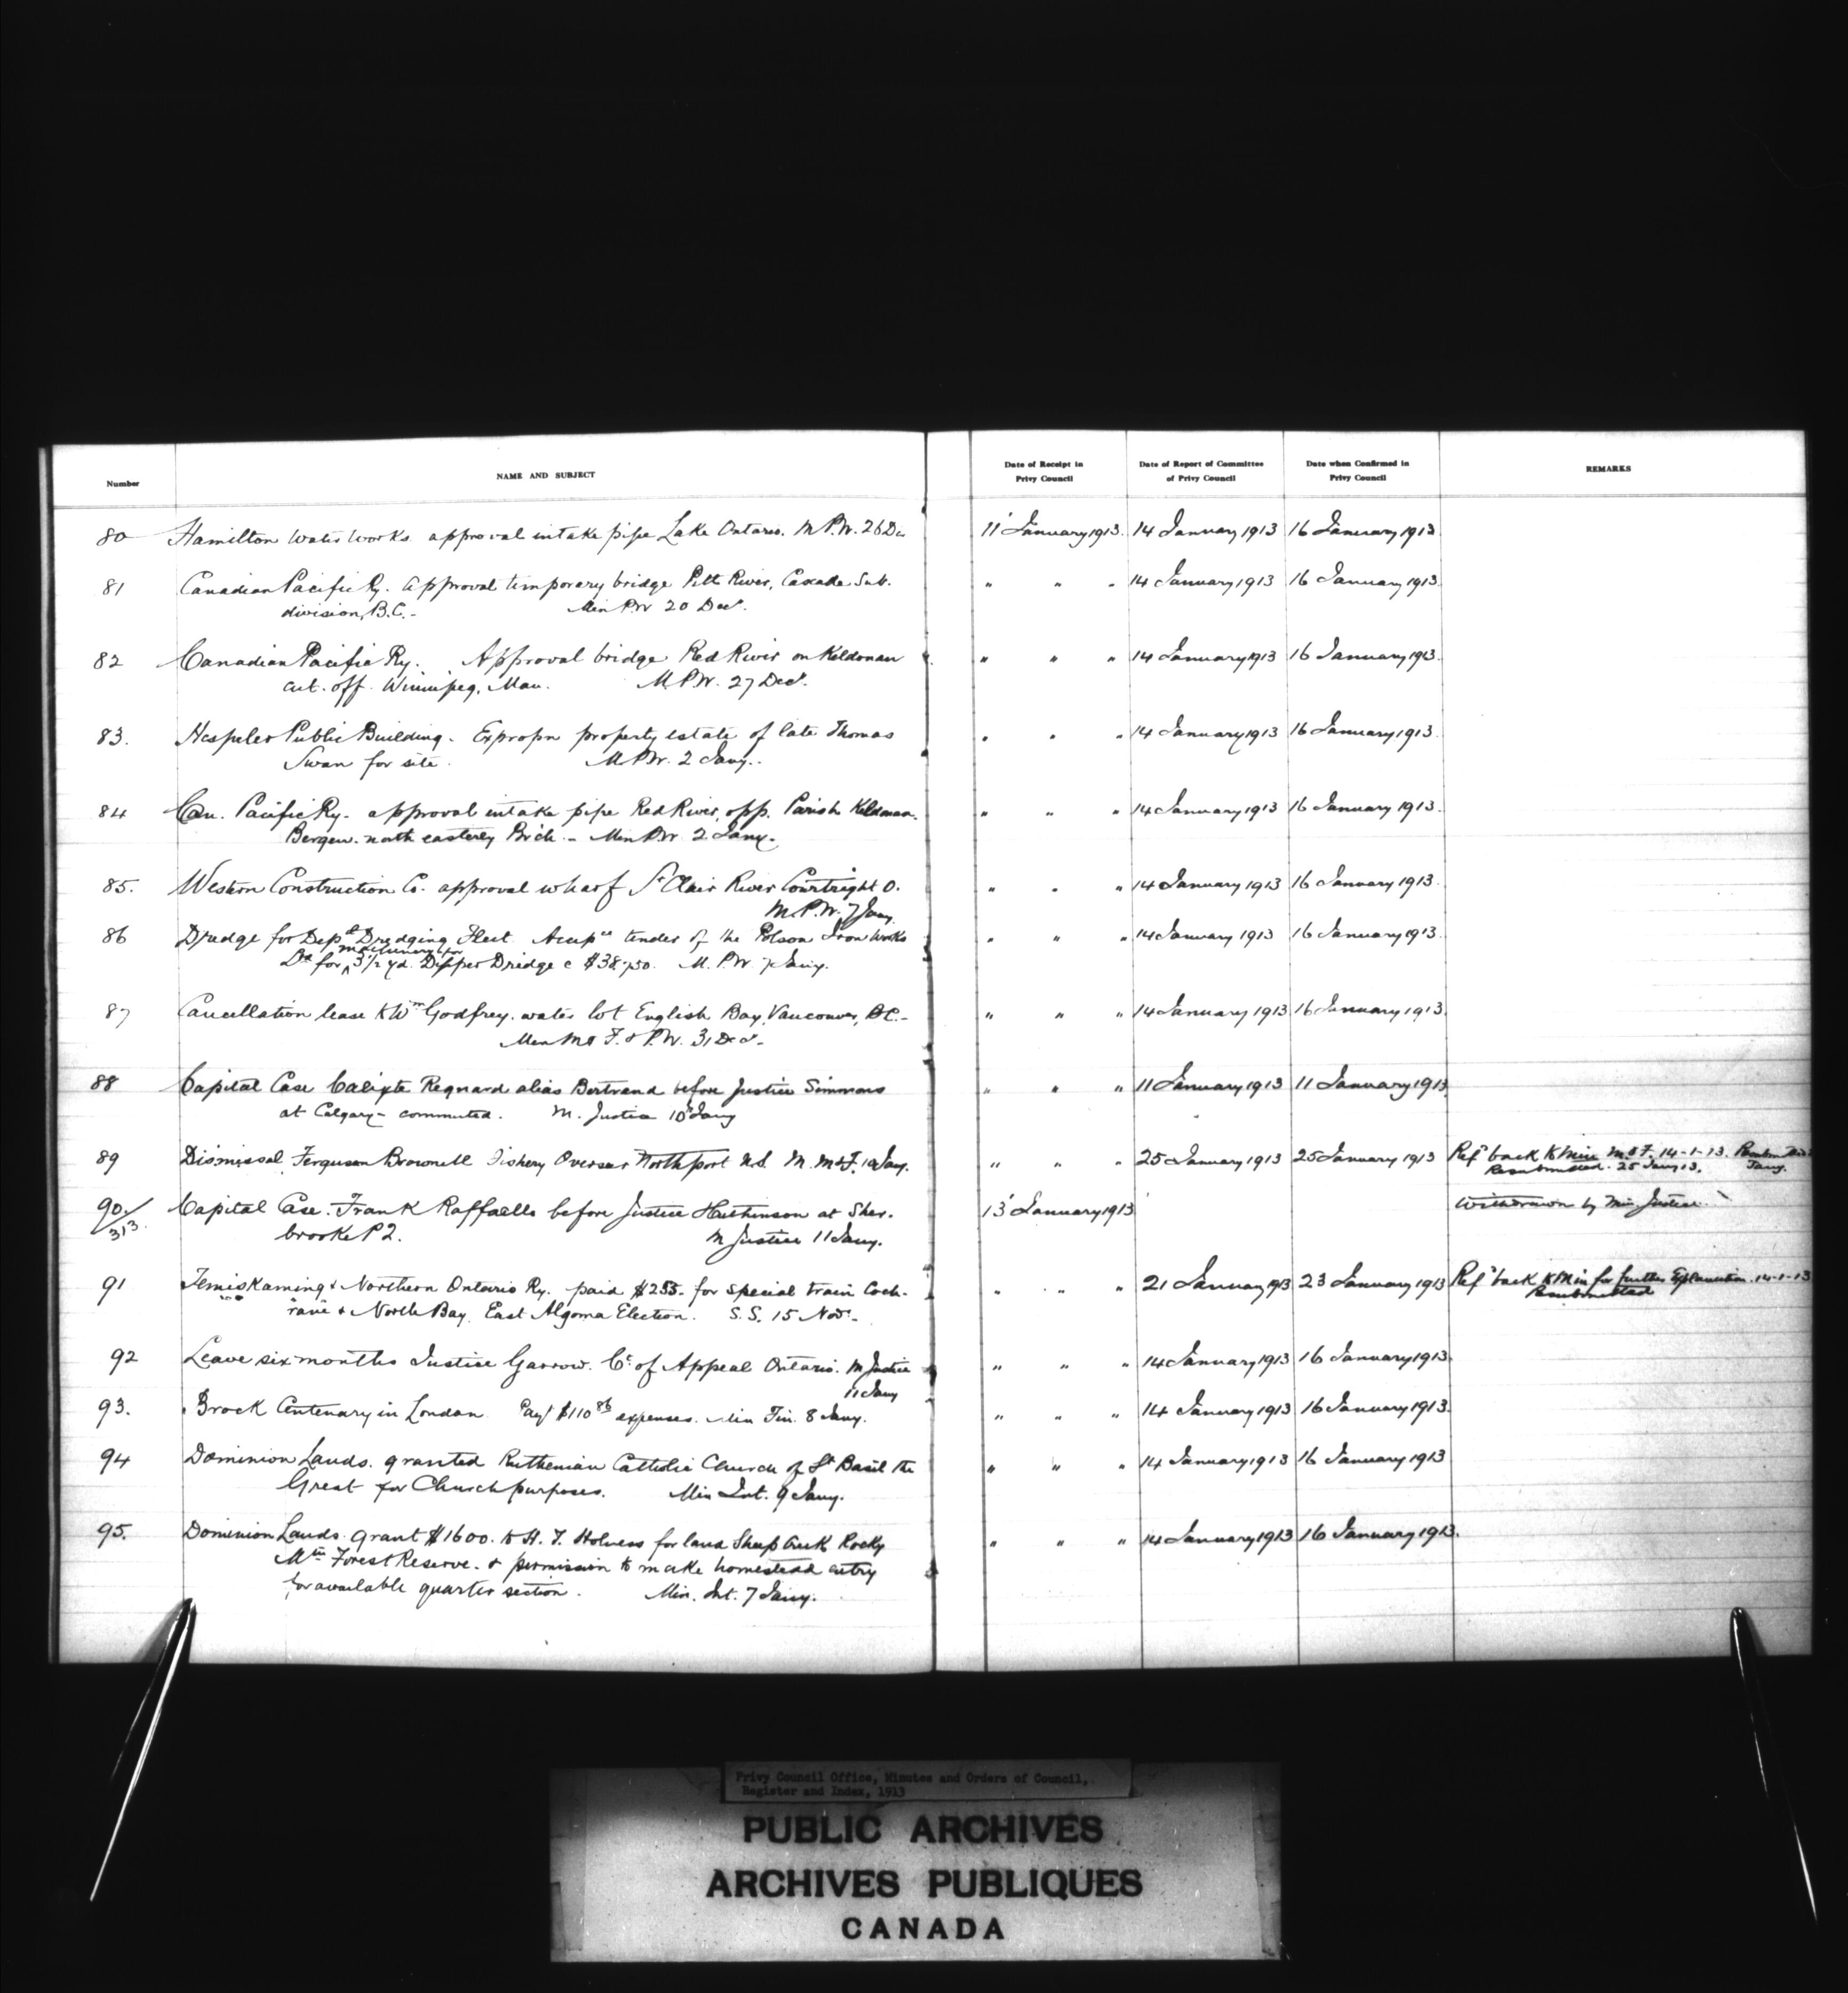 Number NAME AND SUBJECT Date of Receipt in Privy Council Date of Report of Committee of Privy Council Date when Confirmed in Privy Council REMARKS
80 Hamilton Water Works approval intake pipe Lake Ontario. M.P.W. 26 Dec 11 January 1913. 14 January 1913 16 January 1913
81 Canadian Pacific Ry. approval temporary bridge Pitt River, Cascade Sub. " " " 14 January 1913 16 January 1913
division, B.C. - Min P.W 20 Decr.
82 Canadian Pacific Ry. Approval bridge Red River on Kildonan " " " 14 January 1913 16 January 1913.
cut. off. Winnipeg, Man. M.P.W. 27 Decr.
83. Hespeler Public Building. Expropn property estate of late Thomas " " " 14 January 1913 16 January 1913.
Swan for site. M.P.W. 2 Jany.
84 Can. Pacific Ry. approval intake pipe Red River, opp. Parish Kildonan. " " " 14 January 1913 16 January 1913.
Bergen. north easterly Brch. - Min P.W 2 Jany.
85. Western Construction Co. approval wharf St Clair River Courtright O. " " " 14 January 1913 16 January 1913.
M.P.W. 7 Jany.
86 Dredge for Dept Dredging Fleet. Accepce tender of the Polson Iron Works " " " 14 January 1913 16 January 1913.
machinery for
Ld for 3 1/2 yd. Dipper Dredge c $38,750. M. P.W. 7 Jany.
87 Cancellation lease to Wm Godfrey. water lot English Bay, Vancouver, B.C. - " " " 14 January 1913 16 January 1913.
Min M & F. & P.W. 31 Decr.
88 Capital Case Calixte Regnard alias Bertrand before Justice Simmons " " " 11 January 1913 11 January 1913.
at Calgary - commuted. M. Justice 10 Jany
89 Dismissal Ferguson Brownell Fishery Overseer Northport N.S. M. M & F. 10 Jany. " " " 25 January 1913 25 January 1913 Refd back to Min M & F. 14-1-13.
Resubmitted. 25 Jany 13. Jany.
90. / 313. Capital Case. Frank Raffaello before Justice Hutchinson at Sher. 13 January 1913 Withdrawn by Min. Justice
brooke P2. M Justice 11 Jany.
91 Temiskaming & Northern Ontario Ry. paid $255. for special train Coch. " " " 21 January 1913 23 January 1913 Refd back to Min for further Explanation. 14-1-13
rane & North Bay. East Algoma Election. S.S. 15 Novr. Resubmitted
92 Leave six months Justice Garrow. Ct of Appeal Ontario. M Justice " " " 14 January 1913 16 January 1913
11 Jany
93. Brock Centenary in London. Payt $110 86 expenses. Min Fin. 8 Jany. " " " 14 January 1913 16 January 1913.
94 Dominion Lands. granted Ruthenian Catholic Church of St Basil the " " " 14 January 1913 16 January 1913
Great for Church purposes. Min Int. 9 Jany.
95. Dominion Lands. grant $1600. to H. T. Holness for land Sheep Creek Rocky " " " 14 January 1913 16 January 1913.
Mtn Forest Reserve. & permission to make homestead entry
for available quarter section. Min. Int. 7 Jany.
Privy Council Office, Minutes and Orders of Council,
Register and Index, 1913
PUBLIC ARCHIVES
ARCHIVES PUBLIQUES
CANADA